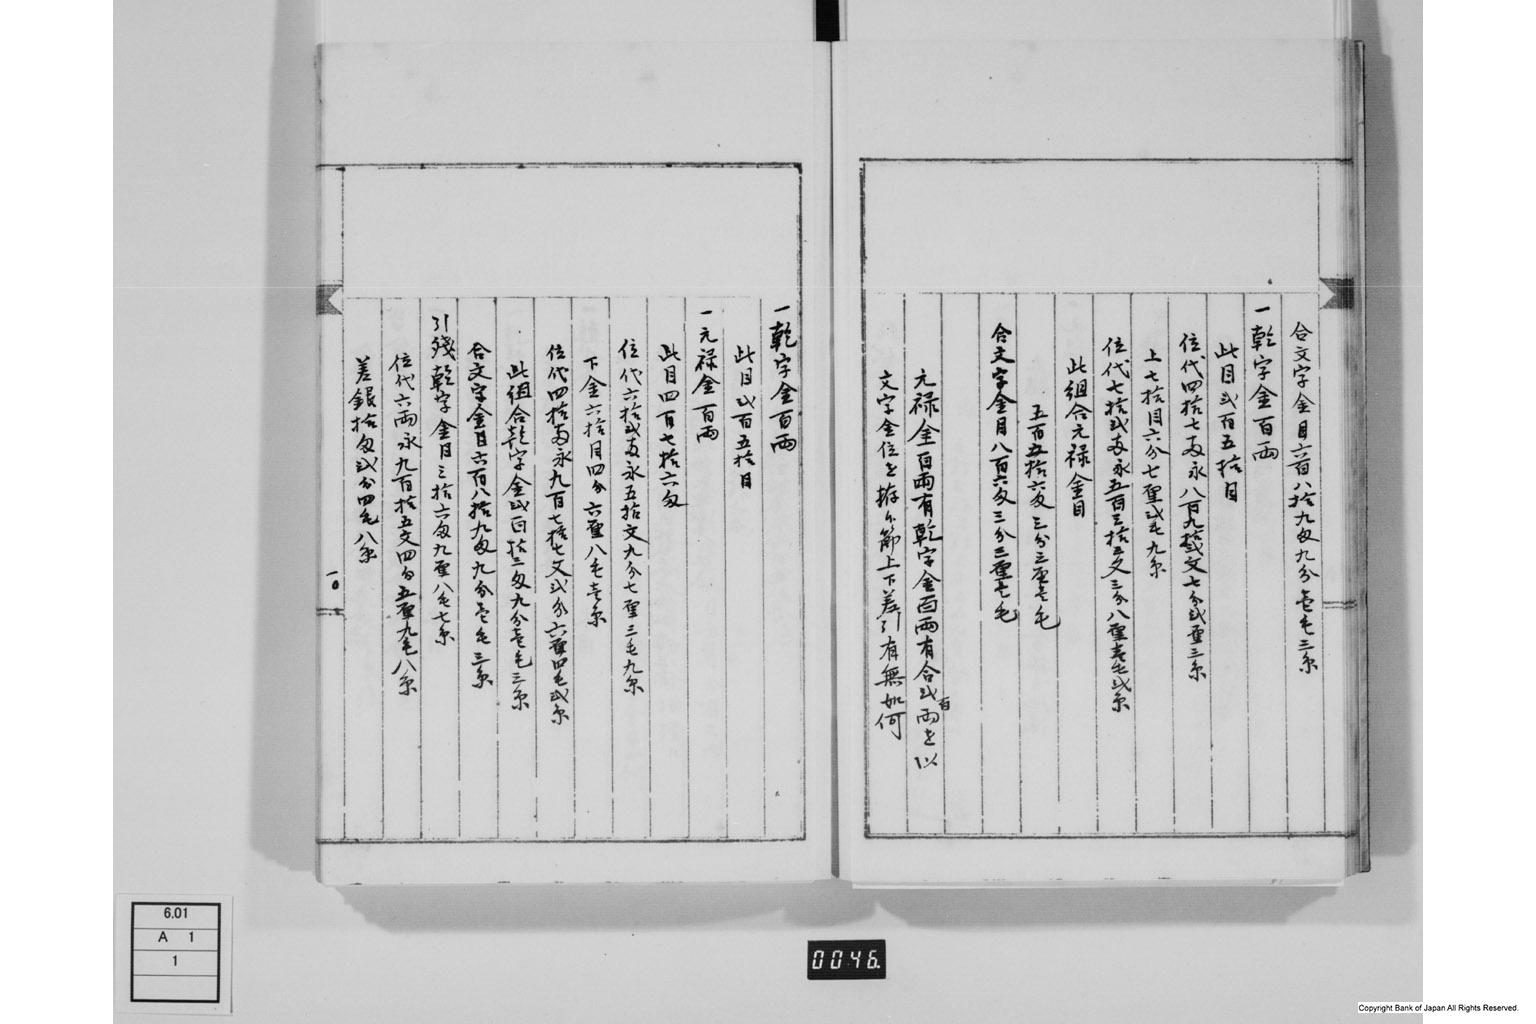 合文字金目六百八拾九匁九分壱毛三糸
一乾字金百両
此目弐百五拾目
位代四拾七両永八百九拾弐文七分弐厘三糸
上七拾目六分七厘弐毛九糸
位代七拾弐両永五百三拾三文三分八厘壱毛弐糸
此組合元禄金目
五百五拾六匁三分三厘壱毛
合文字金目八百六匁三分三厘壱毛
元禄金百両有乾字金百両有合弐百両を以
文字金位を拵候節上下差引有無如何
一乾字金百両
此目弐百五拾目
一元禄金百両
此目四百七拾六匁
位代六拾弐両永五拾文九分七厘三毛九糸
下金六拾目四分六厘八毛壱糸
位代四拾両永九百七拾七文弐分六厘四毛弐糸
此組合乾字金弐百拾三匁九分壱毛三糸
合文字金目六百八拾九匁九分壱毛三糸
引残乾字金目三拾六匁九厘八毛七糸
位代六両永九百拾五文四分五厘九毛八糸
差銀拾匁弐分四毛八糸
一〇
6.01
A 1
1
0046.
Copyright Bank of Japan All Rights Reserved.